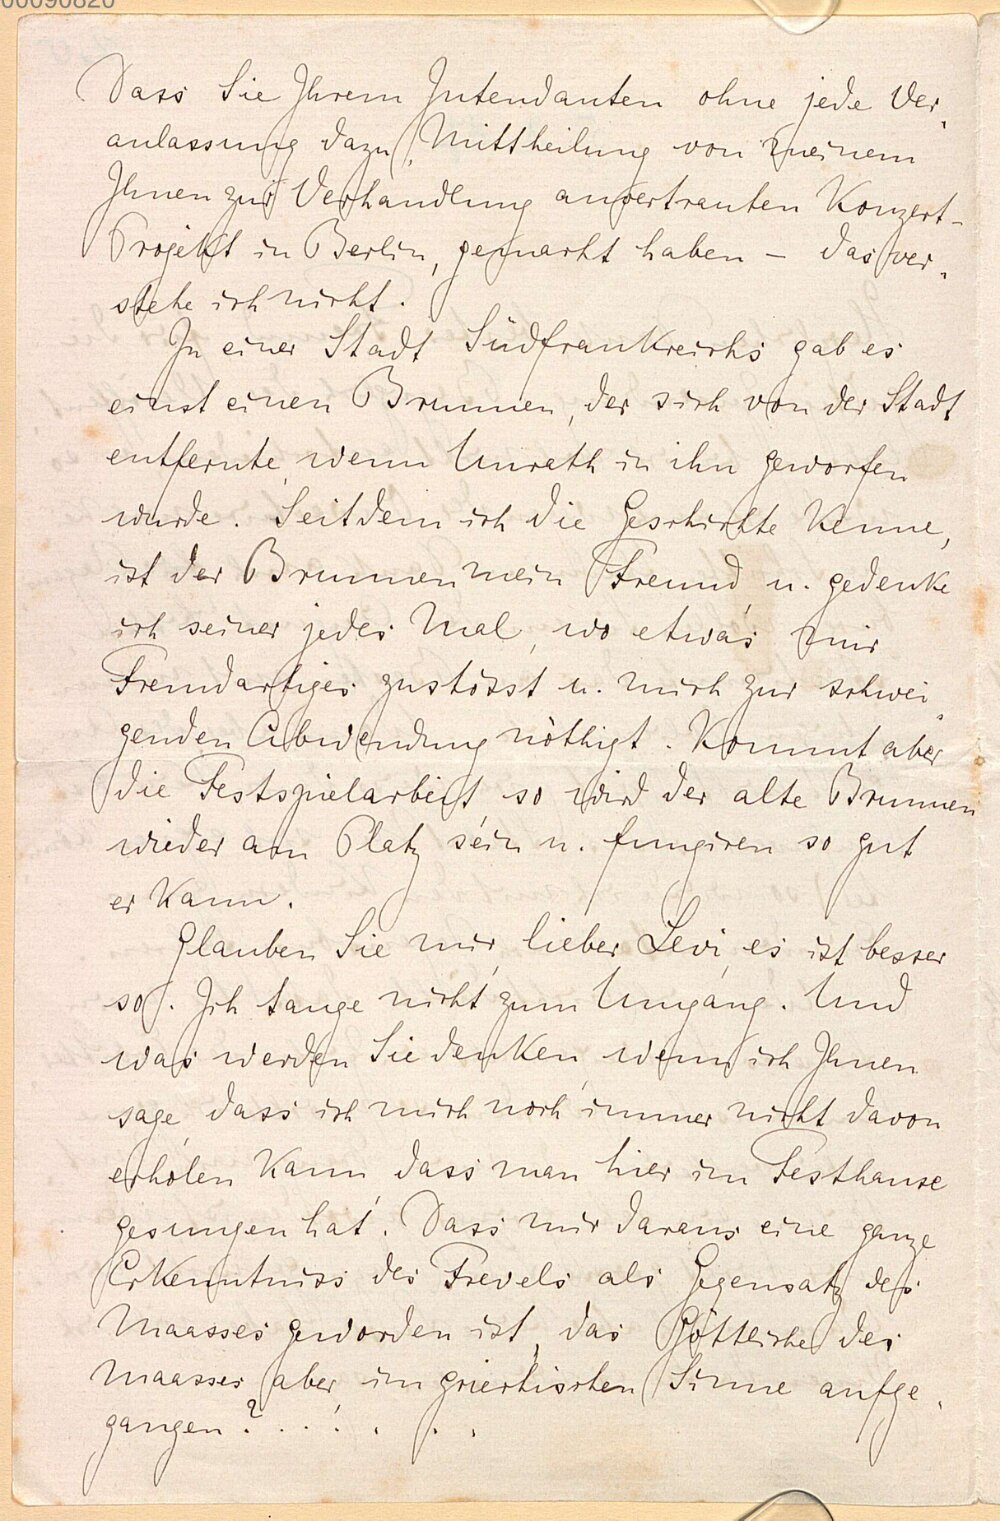 00090820
Dass Sie Ihrem Intendanten ohne jede Ver-
anlassung dazu, Mittheilung von meinem
Ihnen zur Verhandlung anvertrauten Konzert-
Projekt in Berlin, gemacht haben – das ver-
stehe ich nicht.
In einer Stadt Südfrankreichs gab es
einst einen Brunnen, der sich von der Stadt
entfernte, wenn Unrath in ihn geworfen
wurde. Seitdem ich die Geschichte kenne,
ist der Brunnen mein Freund u. gedenke
ich seiner jedes Mal, wo etwas mir
Fremdartiges zustösst u. mich zur schwei-
genden Abwendung nöthigt. Kommt aber
die Festspielarbeit so wird der alte Brunnen
wieder am Platz sein u. fungiren so gut
er kann.
Glauben Sie mir, lieber Levi, es ist besser
so. Ich tauge nicht zum Umgang. Und
was werden Sie denken, wenn ich Ihnen
sage, dass ich mich noch immer nicht davon
erholen kann, dass man hier im Festhause
gesungen hat. Dass mir daraus eine ganze
Erkenntniss des Frevels als Gegensatz des
Maasses geworden ist, das Göttliche des
Maasses aber im griechischen Sinne aufge-
gangen? . . . . . .